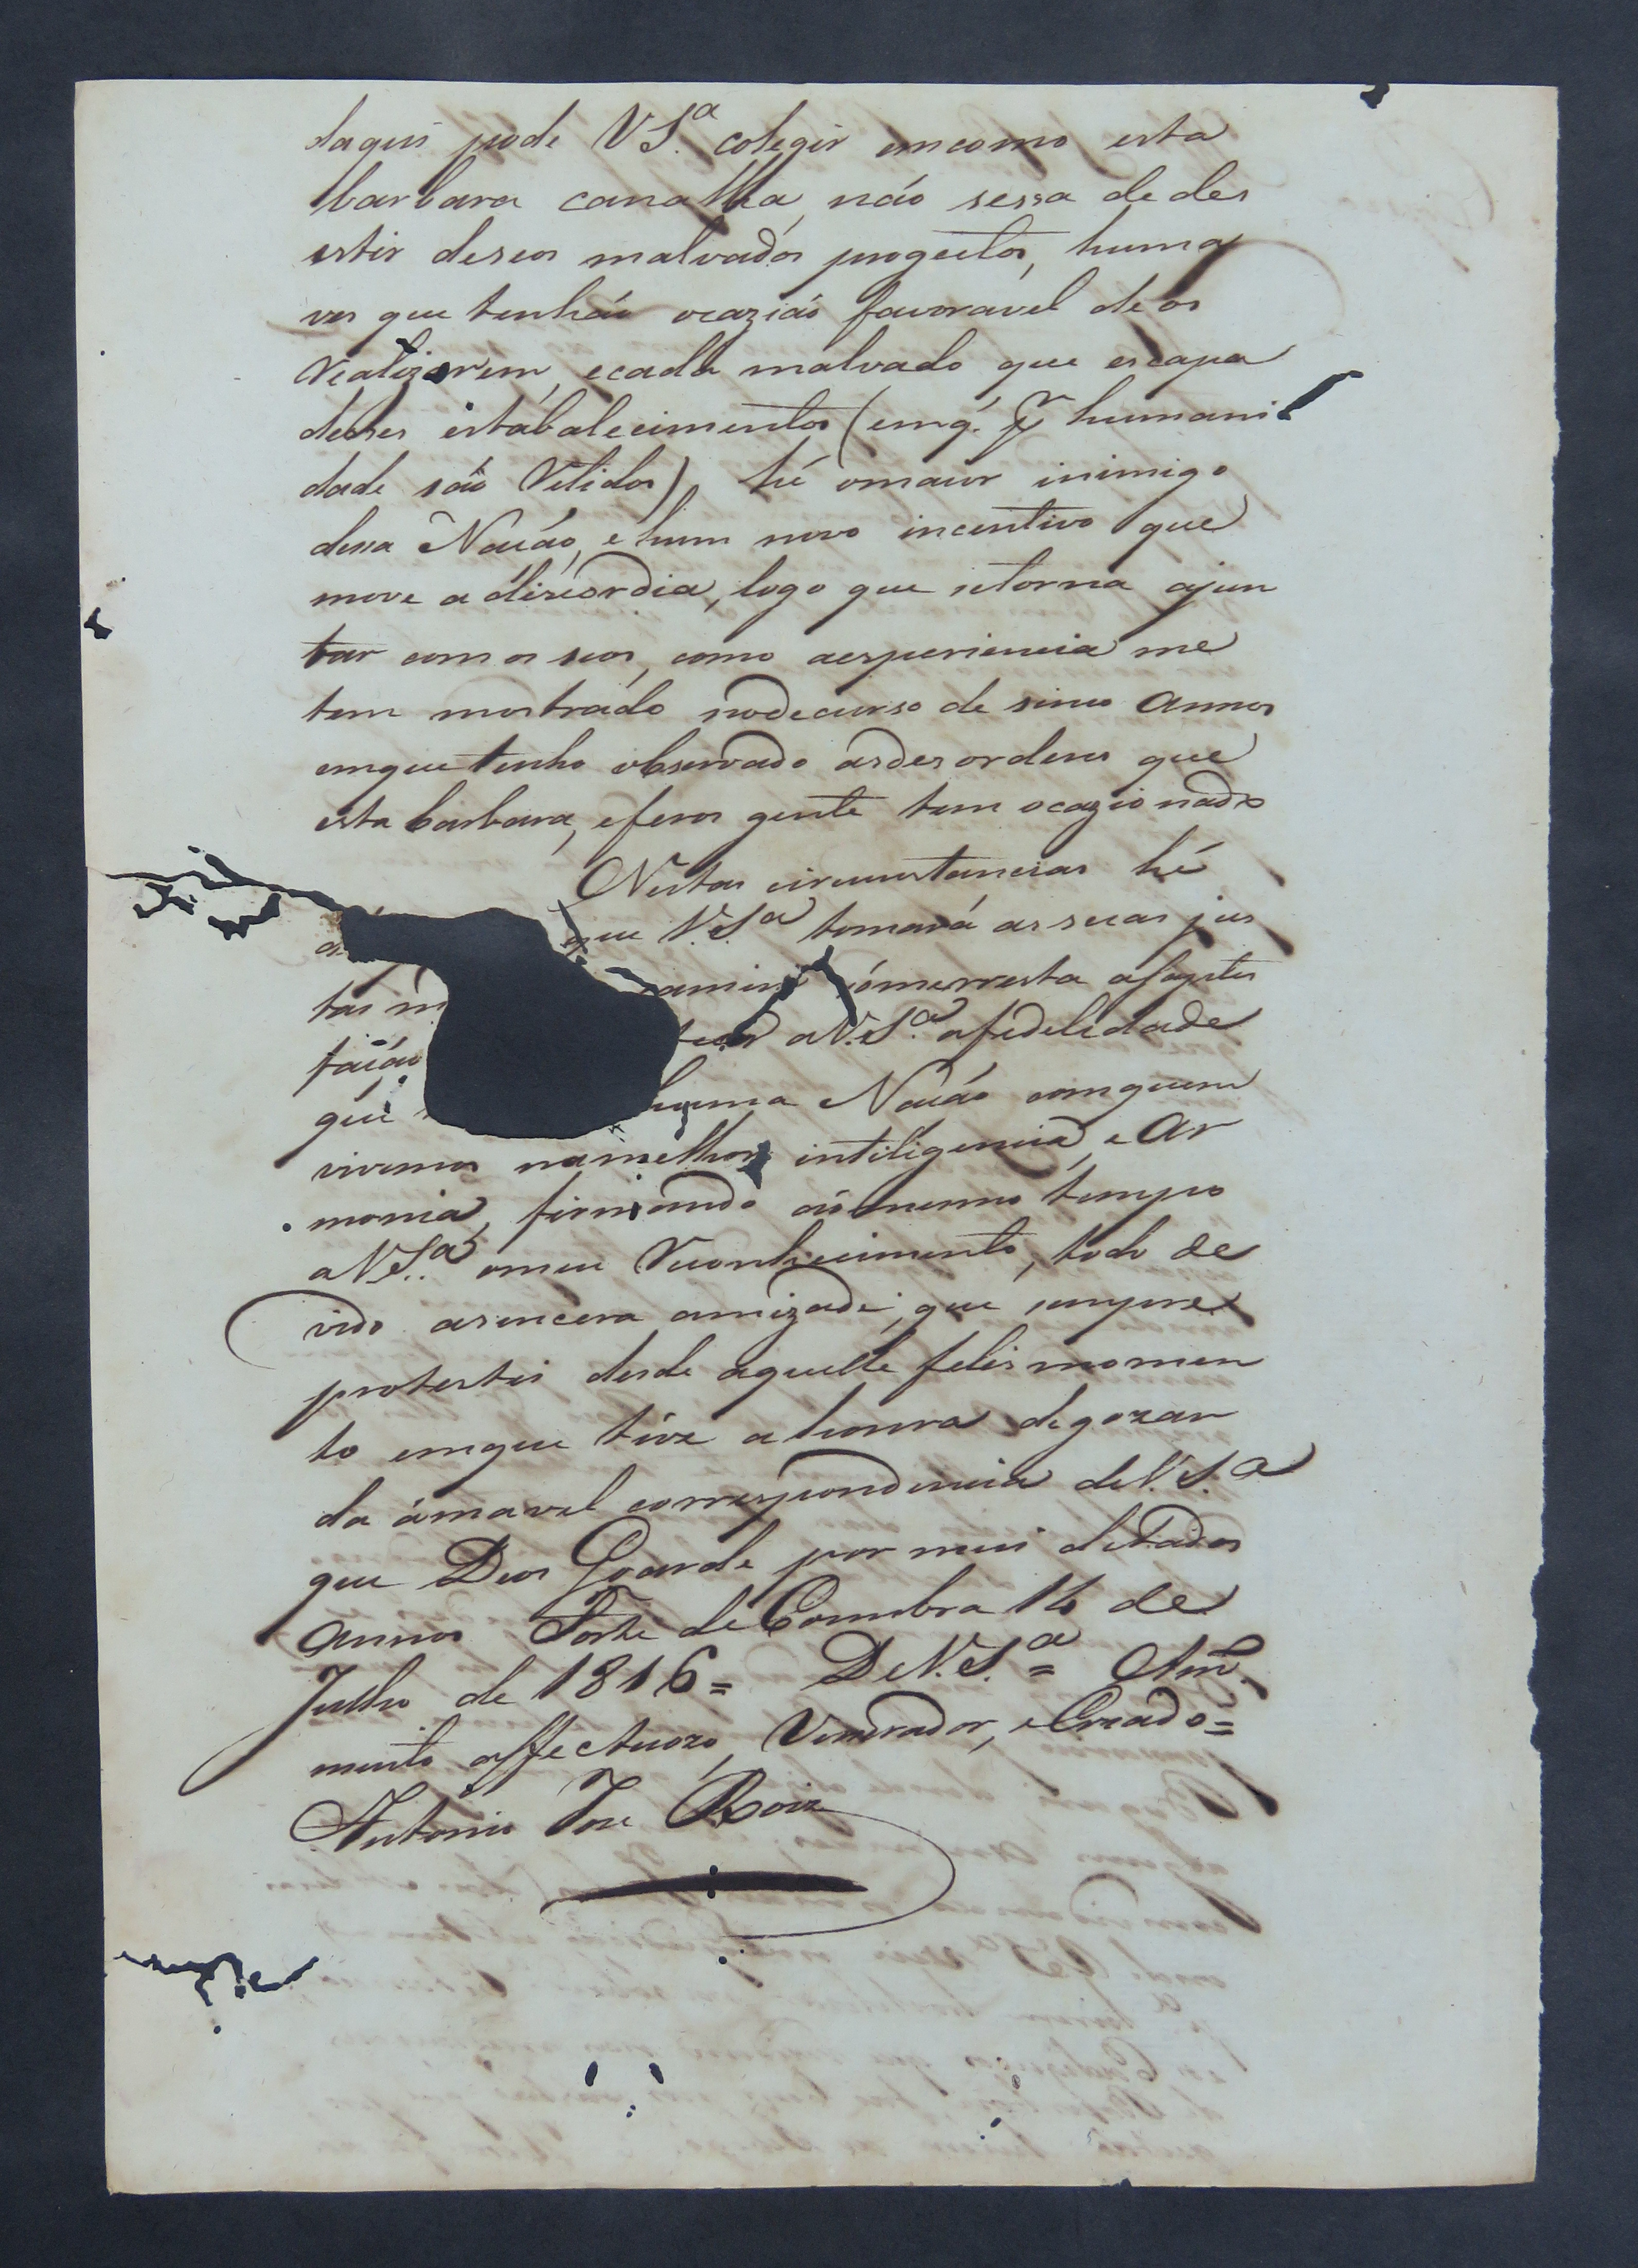 daqui pode V S.ª colegir emcomo esta
barbara canalha, não sessa de des
estir deseos malvados progectos, huma
ves que tenháo ocazião favoravel de os
Realizarem, ecada malvado que escapa
desses estabalecimentos (emq.' p.r humani
dade são Retidos), hé omaior inimigo
dessa Nação, e hum novo incentivo que
move a discordia, logo que setorna ajun
tar com os seos, como aexperiencia me
tem mostrado nodecurso de sinco Annos
emque tenho observado asdesordens que
esta barbara, eferos gente tem ocazionado
Nestas circunstancias hé
que V.S.ª tomará as suas jus
tas
ámim sómerresta
tação a V.S.ª afidelidade
que huma Nação comquem
vivemos namelhor intiligencia, e Ar
monia, firmando aómesmo tempo
a V.S.ª omeu Reconhecimento, todo de
vido asincera amizade, que sempre
protestei desde aquelle felis momen
to emque tive ahonra degozar
da ámavel correspondencia de V.S.ª
que Deos Goarde por meus delatados
Annos Forte de Coimbra 14 de
Julho de 1816 = De V.S.ª = Am.º
muito affectuozo, Venerador, e Creado =
Antonio Jose Roiz